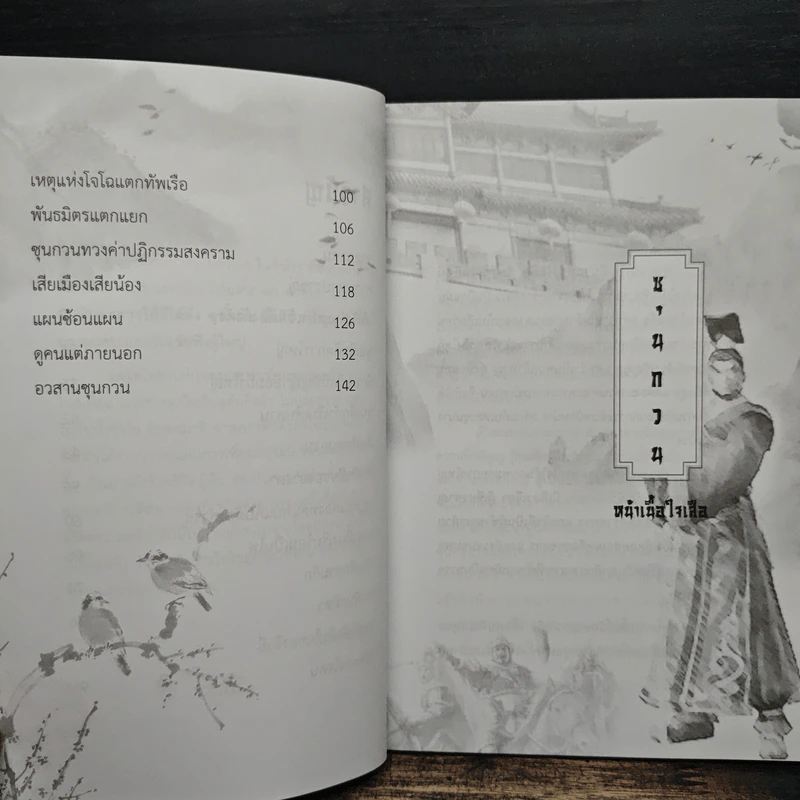 เหตุแห่งโจโฉแตกทัพเรือ 100
พันธมิตรแตกแยก 106
ซุนกวนทวงค่าปฏิกรรมสงคราม 112
เสียเมืองเสียน้อง 118
แผนซ้อนแผน 126
ดูคนแต่ภายนอก 132
อวสานซุนกวน 142
ซุนกวน
หน้าเนื้อใจเสือ